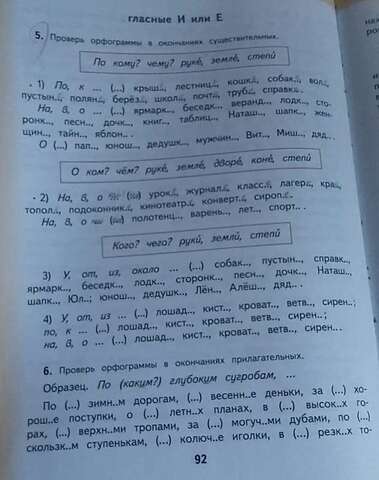 гласные И или Е
5. Проверь орфограммы в окончаниях существительных.
По кому? чему? руке́, земле́, степи́
1) По, к ... (...) крыш.., лестниц.., кошк.., собак.., вол..,
пустын.., полян.., берёз.., школ.., почт.., труб.., справк..
На, в, о ... (...) ярмарк.., беседк.., веранд.., лодк.., сто-
ронк.., песн.., дочк.., книг.., таблиц.., Наташ.., шапк.., жен-
щин.., тайн.., яблон.. .
О (...) пап.., юнош.., дедушк.., мужчин.., Вит.., Миш.., дяд.. .
О ком? чём? руке́, земле́, дворе́, коне́, степи́
2) На, в, о (...) урок.., журнал.., класс.., лагер.., кра..,
топол.., подоконник.., кинотеатр.., конверт.., сироп.. .
На, в, о (...) полотенц.., варень.., лет.., спорт.. .
Кого? чего? руки́, земли́, степи́
3) У, от, из, около ... (...) собак.., пустын.., справк..,
ярмарк.., беседк.., лодк.., сторонк.., песн.., дочк.., Наташ..,
шапк.., Юл..; юнош.., дедушк.., Лён.., Алёш.., дяд.. .
4) У, от, из ... (...) лошад.., кист.., кроват.., ветв.., сирен..;
по, к ... (...) лошад.., кист.., кроват.., ветв.., сирен..;
на, в, о ... (...) лошад.., кист.., кроват.., ветв.., сирен.. .
6. Проверь орфограммы в окончаниях прилагательных.
Образец. По (каким?) глубоким сугробам, ...
По (...) зимн..м дорогам, (...) весенн..е деньки, за (...) хо-
рош..е поступки, о (...) летн..х планах, в (...) высок..х го-
рах, (...) верхн..ми тропами, за (...) могуч..ми дубами, по (...)
скользк..м ступенькам, (...) колюч..е иголки, в (...) резк..х то-
92